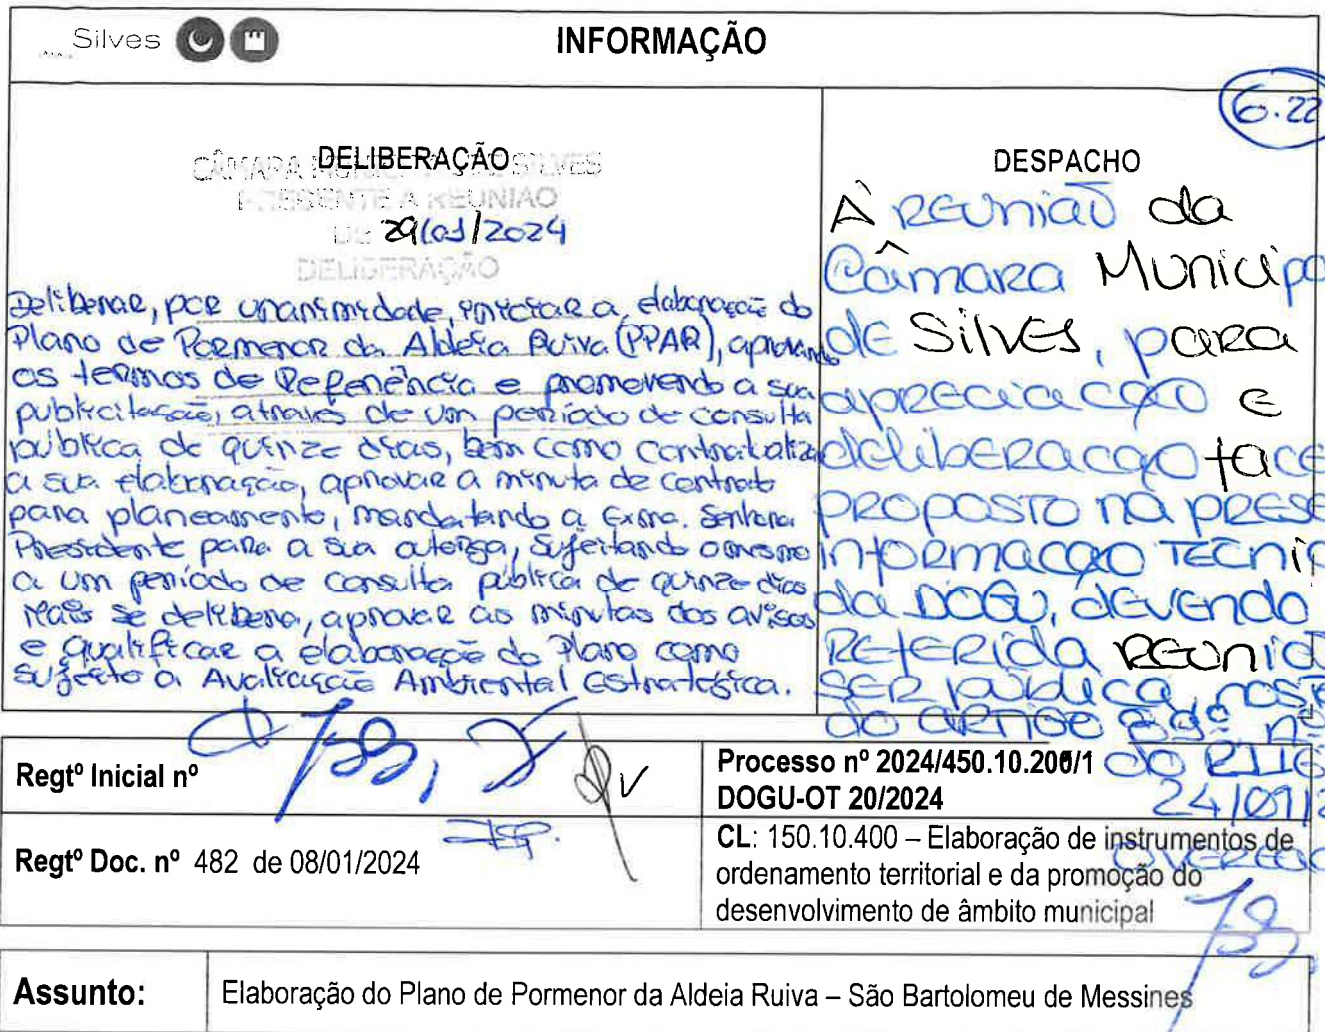 Silves
INFORMAÇÃO
6.22
DELIBERAÇÃO
CÂMARA MUNICIPAL DE SILVES
PRESENTE A REUNIAO
DE 29/01/2024
DELIBERAÇÃO
Deliberar, por unanimidade, iniciar a elaboração do
Plano de Pormenor da Aldeia Ruiva (PPAR), aprovando
os termos de Referência e promovendo a sua
publicitação, através de um período de consulta
pública de quinze dias, bem como contratualiza
a sua elaboração, aprovar a minuta de contrato
para planeamento, mandatando a Exma. Senhora
Presidente para a sua outorga, sujeitando o mesmo
a um período de consulta pública de quinze dias
Mais se delibera, aprovar as minutas dos avisos
e qualificar a elaboração do Plano como
sujeito a Avaliação Ambiental Estratégica.
DESPACHO
À reunião da
Câmara Municipa
de Silves, para
apreciação e
deliberação face
proposto na prese
informação técnic
da DOGU, devendo
referida reuniã
ser pública, nos te
do artigo 89º nº
do RJIG
24/01/2
O VEREAD
Regtº Inicial nº
Processo nº 2024/450.10.200/1
DOGU-OT 20/2024
Regtº Doc. nº 482 de 08/01/2024
CL: 150.10.400 – Elaboração de instrumentos de
ordenamento territorial e da promoção do
desenvolvimento de âmbito municipal
Assunto:
Elaboração do Plano de Pormenor da Aldeia Ruiva – São Bartolomeu de Messines